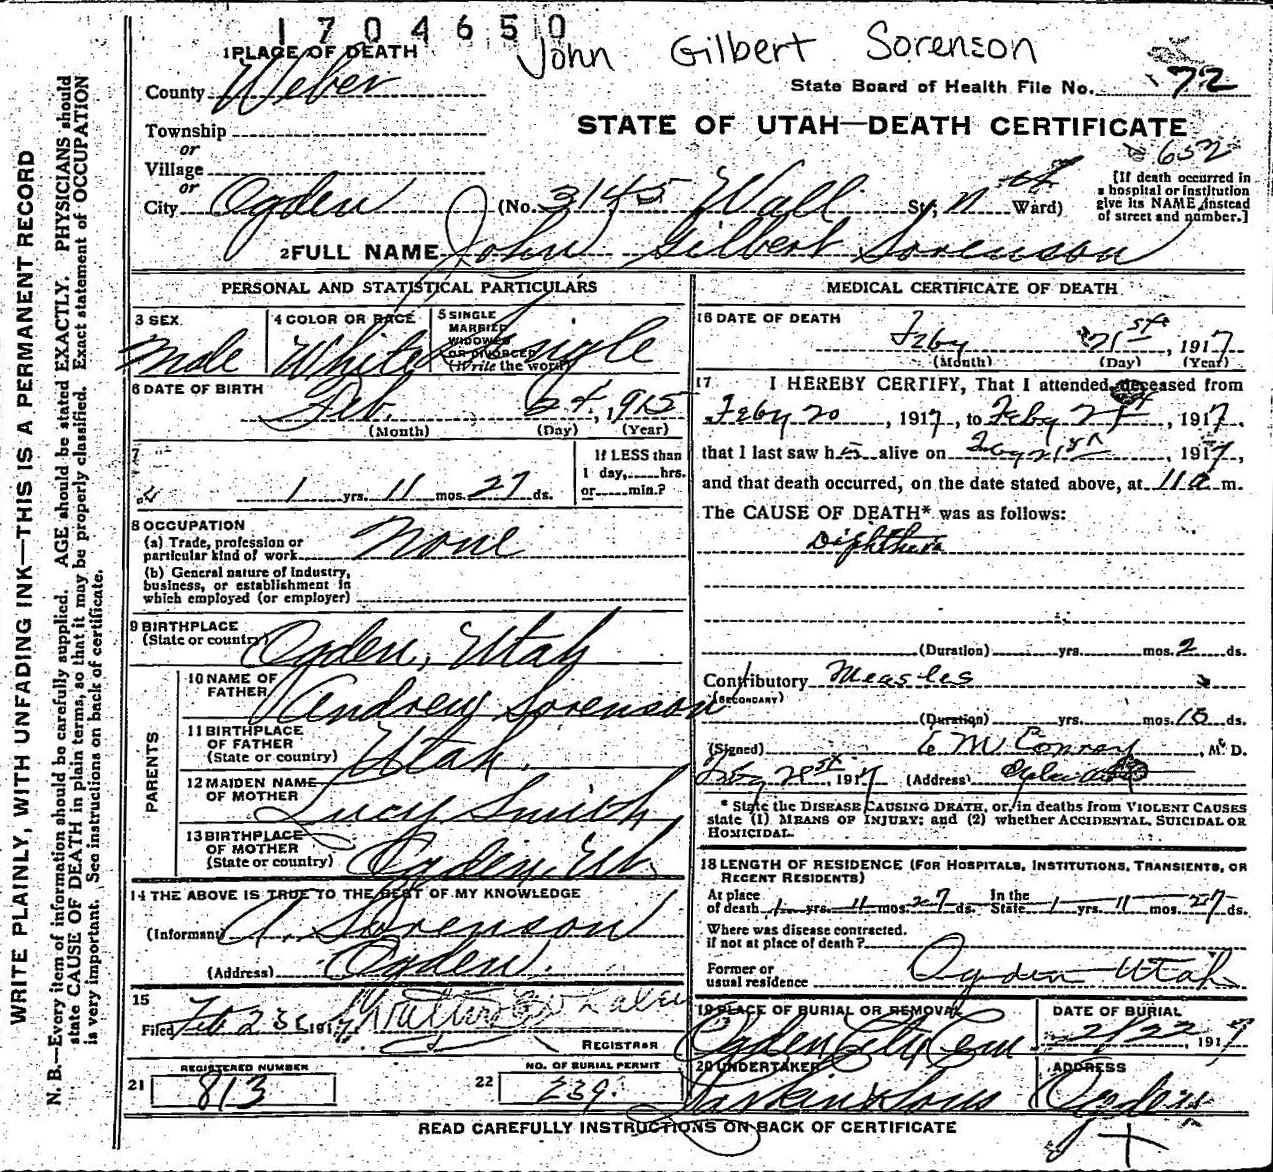 1704650
John Gilbert Sorenson
1 PLACE OF DEATH
County Weber
State Board of Health File No. 72
Township
or
STATE OF UTAH—DEATH CERTIFICATE
652
Village
or
City Ogden (No. 3145 Wall St; Ward)
[If death occurred in a hospital or institution give its NAME instead of street and number.]
2 FULL NAME John Gilbert Sorenson
PERSONAL AND STATISTICAL PARTICULARS
3 SEX
Male
4 COLOR OR RACE
White
5 SINGLE MARRIED WIDOWED OR DIVORCED (Write the word)
Single
6 DATE OF BIRTH
Feb. 24, 1915
(Month) (Day) (Year)
7
1 yrs. 11 mos. 27 ds.
If LESS than 1 day, hrs. or min.?
8 OCCUPATION
(a) Trade, profession or particular kind of work None
(b) General nature of Industry, business, or establishment in which employed (or employer)
9 BIRTHPLACE
(State or country) Ogden, Utah
PARENTS
10 NAME OF FATHER Andrew Sorenson
11 BIRTHPLACE OF FATHER (State or country) Utah
12 MAIDEN NAME OF MOTHER Lucy Smith
13 BIRTHPLACE OF MOTHER (State or country) Ogden, Ut.
14 THE ABOVE IS TRUE TO THE BEST OF MY KNOWLEDGE
(Informant) A. Sorenson
(Address) Ogden.
15
Filed Feb 23 1917 Walter
REGISTRAR
21 REGISTERED NUMBER
813
22 NO. OF BURIAL PERMIT
239.
MEDICAL CERTIFICATE OF DEATH
16 DATE OF DEATH
Feby 21st, 1917
(Month) (Day) (Year)
17 I HEREBY CERTIFY, That I attended deceased from
Feby 20, 1917, to Feby 21st, 1917.
that I last saw h alive on Feby 21st, 1917,
and that death occurred, on the date stated above, at 11 a m.
The CAUSE OF DEATH* was as follows:
Diphtheria
(Duration) yrs. mos. 2 ds.
Contributory Measles
(SECONDARY)
(Duration) yrs. mos. 10 ds.
(Signed) M Conroy, M. D.
Feby 21st, 1917 (Address) Ogden
* State the DISEASE CAUSING DEATH, or, in deaths from VIOLENT CAUSES
state (1) MEANS OF INJURY; and (2) whether ACCIDENTAL, SUICIDAL OR
HOMICIDAL.
18 LENGTH OF RESIDENCE (FOR HOSPITALS, INSTITUTIONS, TRANSIENTS, OR
RECENT RESIDENTS)
At place of death 1 yrs. 11 mos. 27 ds. In the State 1 yrs. 11 mos. 27 ds.
Where was disease contracted.
if not at place of death?
Former or usual residence Ogden Utah
19 PLACE OF BURIAL OR REMOVAL
Ogden City Cem
DATE OF BURIAL
2/22, 1917
20 UNDERTAKER
Larkin & Sons
ADDRESS
Ogden
READ CAREFULLY INSTRUCTIONS ON BACK OF CERTIFICATE
WRITE PLAINLY, WITH UNFADING INK—THIS IS A PERMANENT RECORD
N. B.—Every item of information should be carefully supplied. AGE should be stated EXACTLY. PHYSICIANS should
state CAUSE OF DEATH in plain terms, so that it may be properly classified. Exact statement of OCCUPATION
is very important. See instructions on back of certificate.